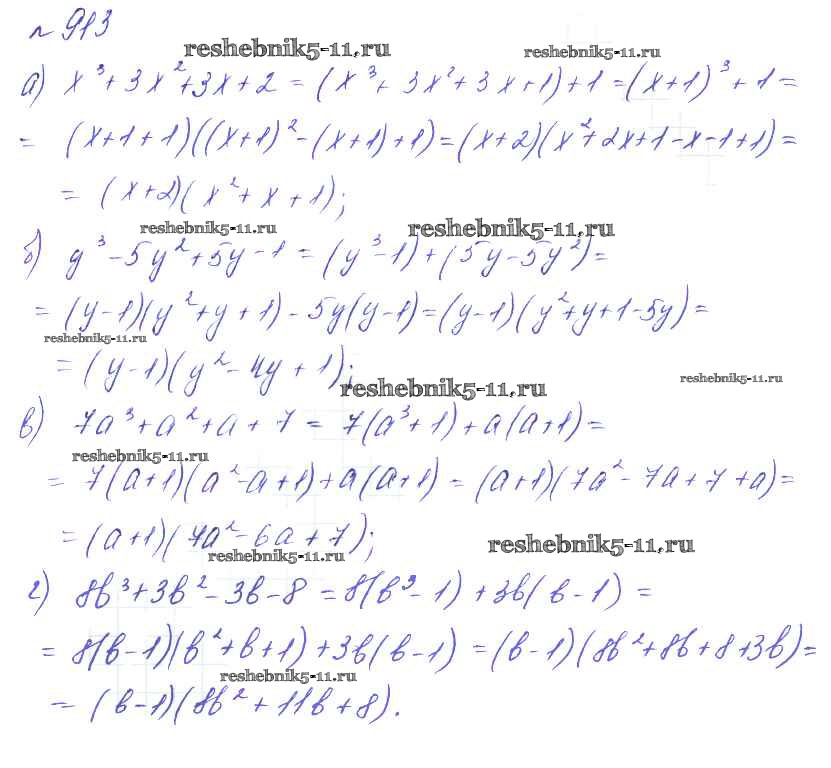 №913
reshebnik5-11.ru reshebnik5-11.ru
а) x³ + 3x² + 3x + 2 = (x³ + 3x² + 3x + 1) + 1 = (x+1)³ + 1 =
= (x+1+1)((x+1)² - (x+1) + 1) = (x+2)(x² + 2x + 1 - x - 1 + 1) =
= (x+2)(x² + x + 1);
reshebnik5-11.ru reshebnik5-11.ru
б) y³ - 5y² + 5y - 1 = (y³ - 1) + (5y - 5y²) =
= (y-1)(y² + y + 1) - 5y(y-1) = (y-1)(y² + y + 1 - 5y) =
reshebnik5-11.ru
= (y-1)(y² - 4y + 1);
reshebnik5-11.ru reshebnik5-11.ru
в) 7a³ + a² + a + 7 = 7(a³ + 1) + a(a+1) =
reshebnik5-11.ru
= 7(a+1)(a² - a + 1) + a(a+1) = (a+1)(7a² - 7a + 7 + a) =
= (a+1)(7a² - 6a + 7);
reshebnik5-11.ru reshebnik5-11.ru
г) 8b³ + 3b² - 3b - 8 = 8(b³ - 1) + 3b(b - 1) =
= 8(b-1)(b² + b + 1) + 3b(b-1) = (b-1)(8b² + 8b + 8 + 3b) =
reshebnik5-11.ru
= (b-1)(8b² + 11b + 8).